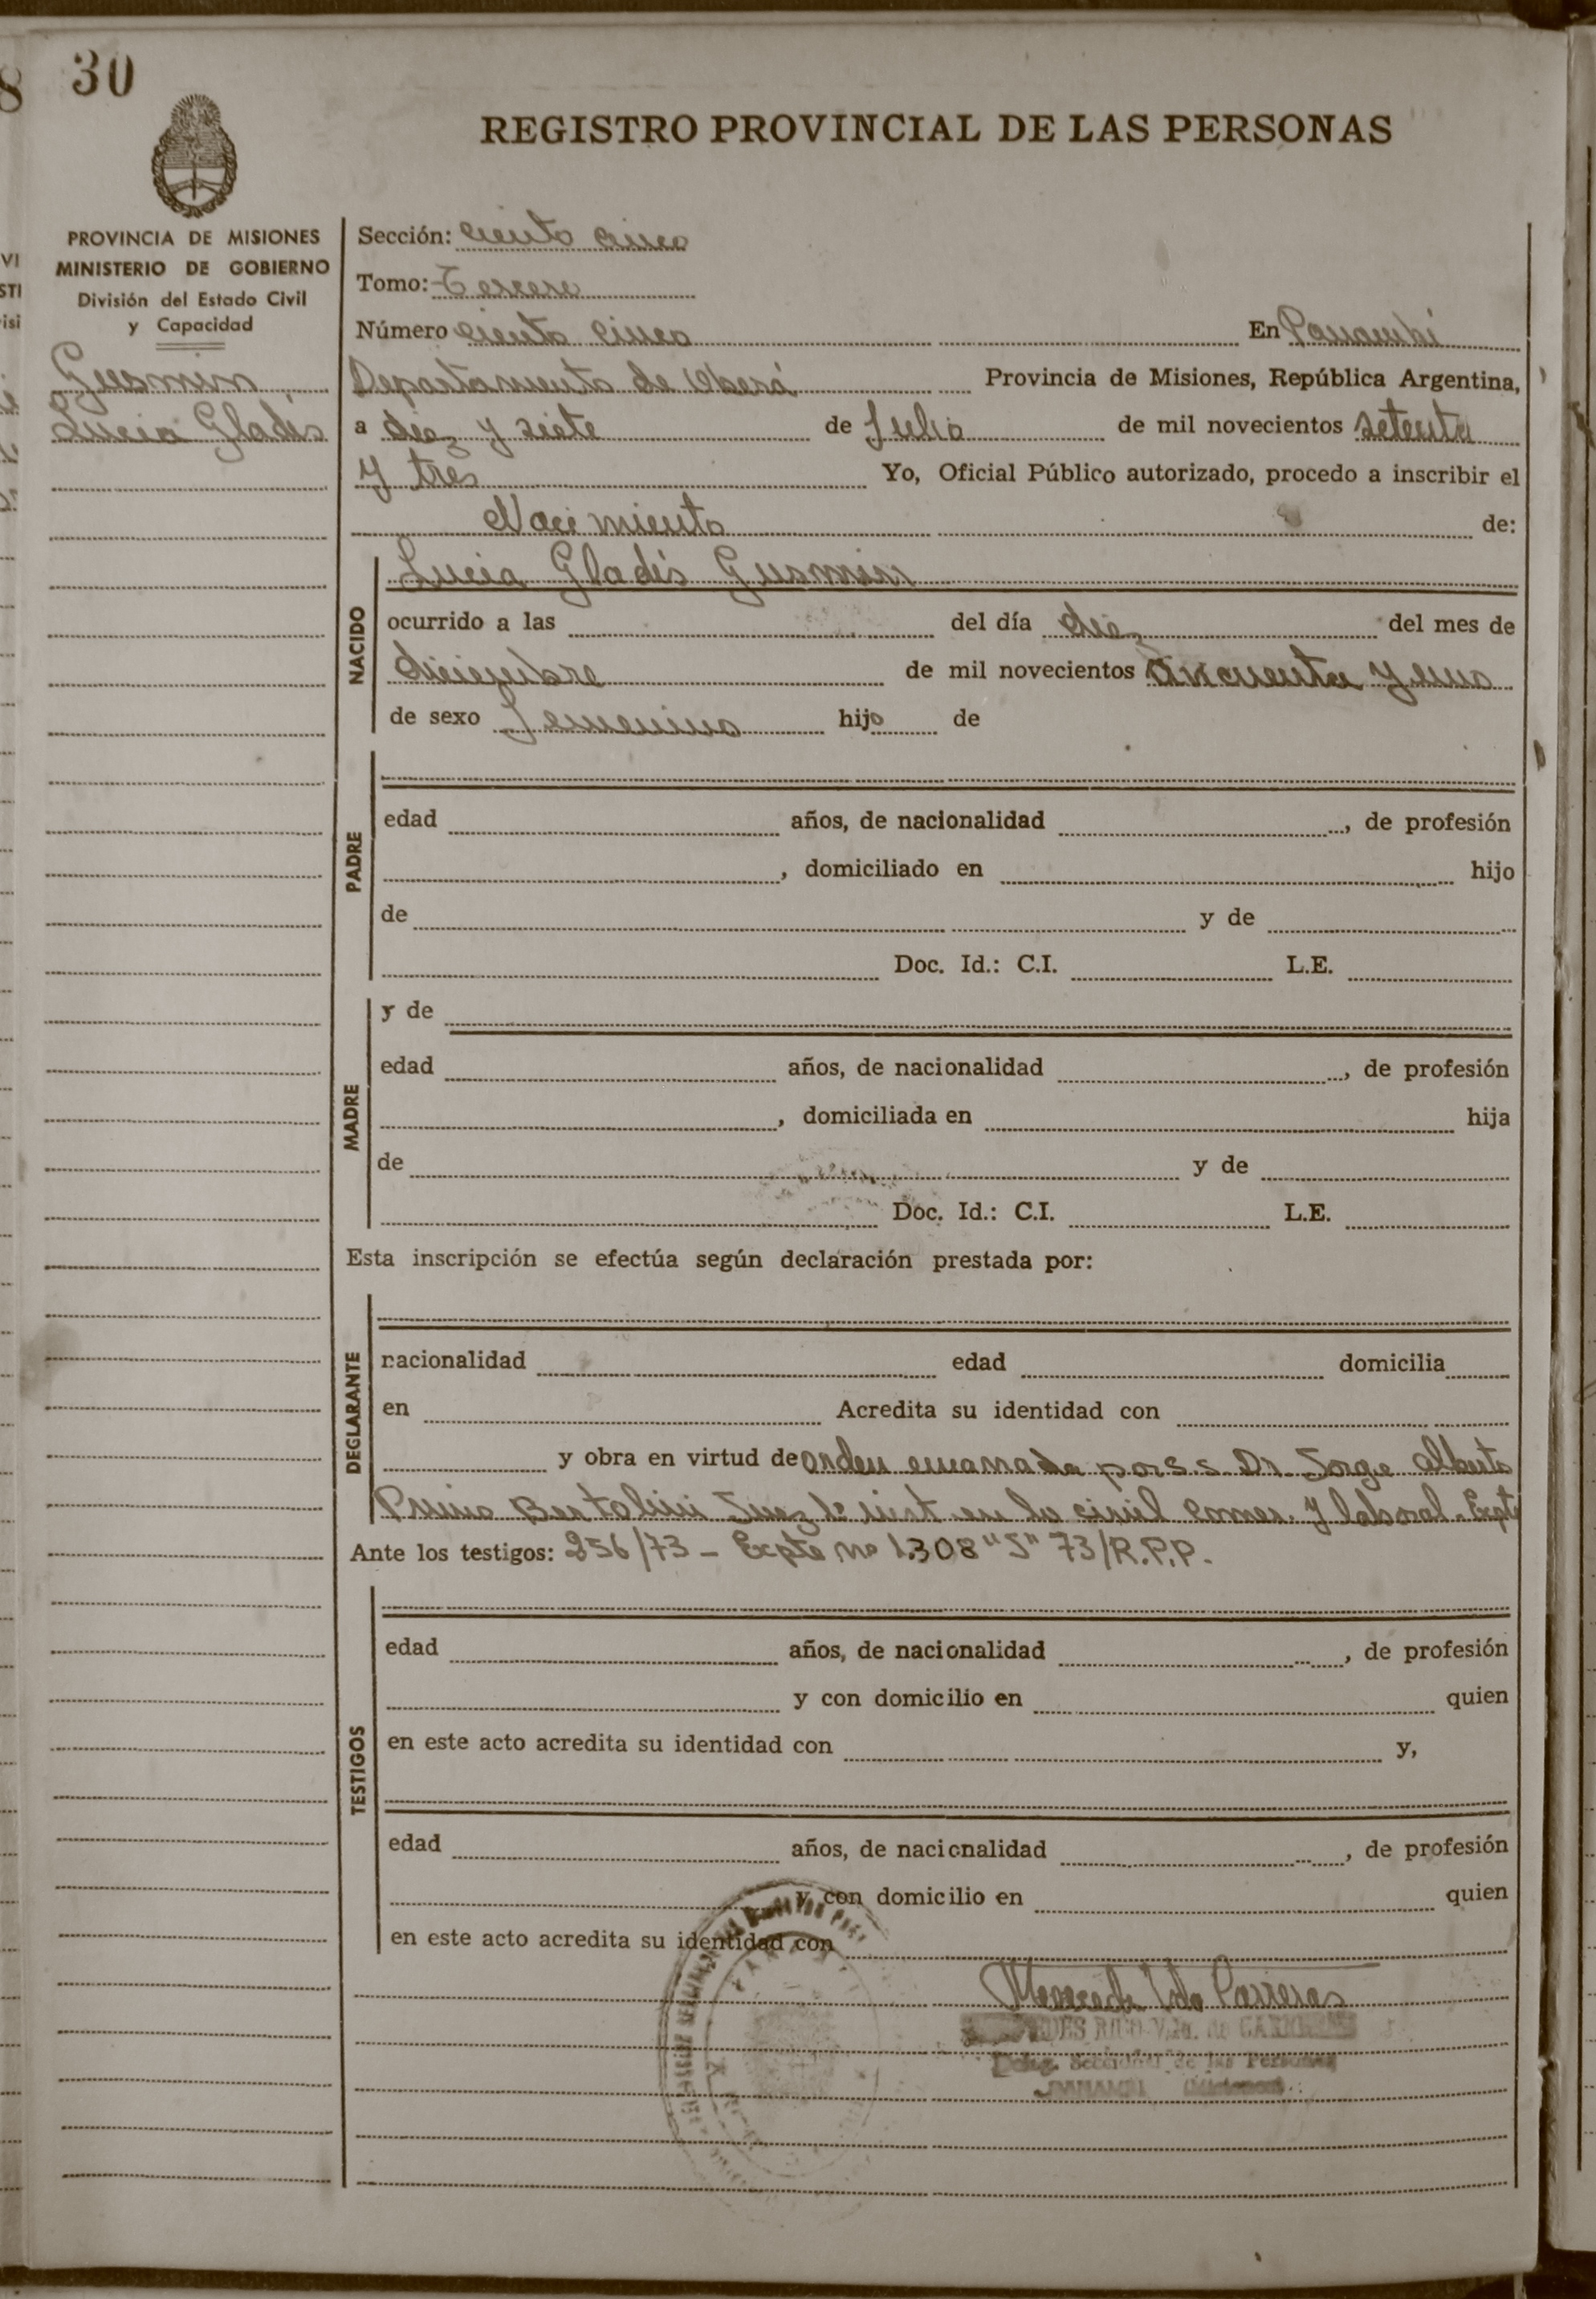 30
REGISTRO PROVINCIAL DE LAS PERSONAS
PROVINCIA DE MISIONES
MINISTERIO DE GOBIERNO
División del Estado Civil
y Capacidad
Gusmin
Lucia Gladis
Sección: ciento cinco
Tomo: Tercero
Número ciento cinco En Panambí
Departamento de Oberá Provincia de Misiones, República Argentina,
a diez y siete de Julio de mil novecientos setenta
y tres Yo, Oficial Público autorizado, procedo a inscribir el
Nacimiento de:
NACIDO
Lucia Gladis Gusmin
ocurrido a las del día diez del mes de
diciembre de mil novecientos cincuenta y uno
de sexo femenino hijo de
PADRE
edad años, de nacionalidad , de profesión
, domiciliado en hijo
de y de
Doc. Id.: C.I. L.E.
MADRE
y de
edad años, de nacionalidad , de profesión
, domiciliada en hija
de y de
Doc. Id.: C.I. L.E.
Esta inscripción se efectúa según declaración prestada por:
DEGLARANTE
nacionalidad edad domicilia
en Acredita su identidad con
y obra en virtud de orden emanada por s.s. Dr. Jorge Alberto
Primo Bertolini Juez 1º inst en lo civil comer. y laboral. Expte
Ante los testigos: 256/73 - Expte nº 1.308 "J" 73/R.P.P.
TESTIGOS
edad años, de nacionalidad , de profesión
y con domicilio en quien
en este acto acredita su identidad con y,
edad años, de nacionalidad , de profesión
y con domicilio en quien
en este acto acredita su identidad con
Vda. de
Deleg. Seccional de las Personas
PANAMBI (Misiones)